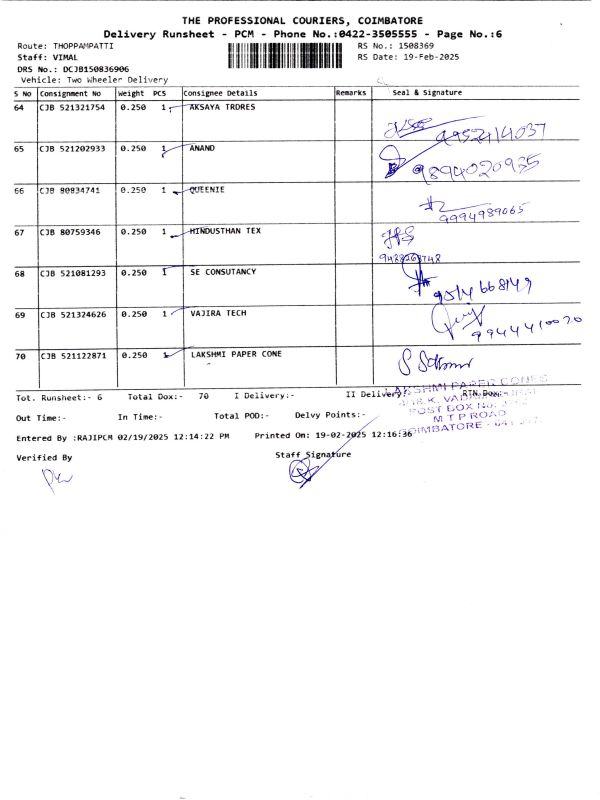 THE PROFESSIONAL COURIERS, COIMBATORE
Delivery Runsheet - PCM - Phone No.:0422-3505555 - Page No.:6
Route: THOPPAMPATTI RS No.: 1508369
Staff: VIMAL RS Date: 19-Feb-2025
DRS No.: DCJB150836906
Vehicle: Two Wheeler Delivery
S No Consignment No Weight PCS Consignee Details Remarks Seal & Signature
64 CJB 521321754 0.250 1 AKSAYA TRDRES
9952114037
65 CJB 521202933 0.250 1 ANAND
9894020935
66 CJB 80834741 0.250 1 QUEENIE
9994989065
67 CJB 80759346 0.250 1 HINDUSTHAN TEX
68 CJB 521081293 0.250 1 SE CONSUTANCY
69 CJB 521324626 0.250 1 VAJIRA TECH
9944410020
70 CJB 521122871 0.250 1 LAKSHMI PAPER CONE
LAKSHMI PAPER CONES
Tot. Runsheet:- 6 Total Dox:- 70 I Delivery:- II Delivery:- RTN Dox:-
POST BOX No.
M T P ROAD
COIMBATORE - 641
Out Time:- In Time:- Total POD:- Delvy Points:-
Entered By :RAJIPCM 02/19/2025 12:14:22 PM Printed On: 19-02-2025 12:16:36
Verified By Staff Signature